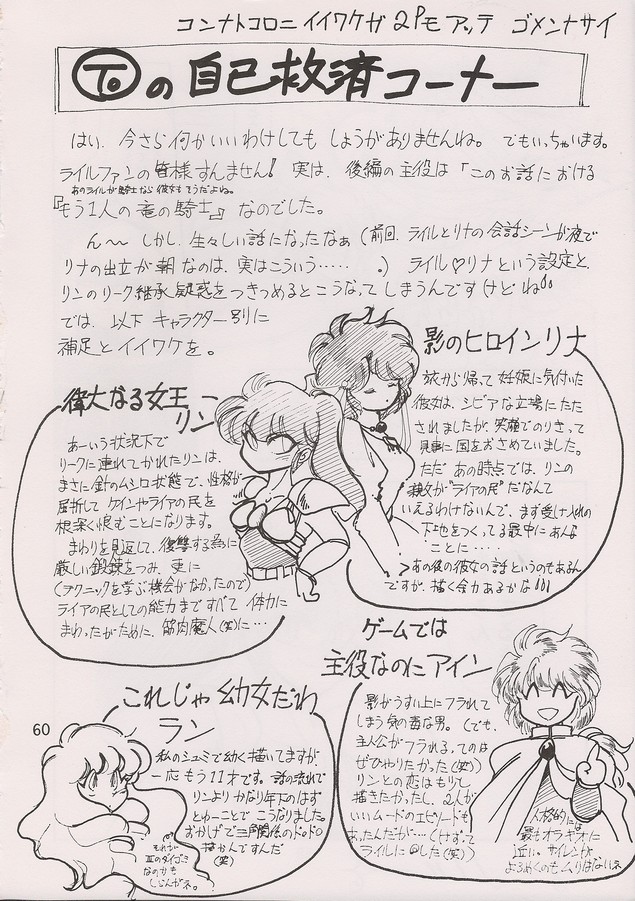 コンナトコロニ イイワケガ 2Pモ アッテ ゴメンナサイ
Toの 自己救済コーナー
はい、今さら何かいいわけしても しょうがありませんね。でもいっちゃいます。
ライルファンの皆様すんません! 実は、後編の主役は「このお話における
あのライルが騎士なら彼女もそうだよね。
『もう1人の竜の騎士』』なのでした。
ん〜 しかし、生々しい話になったなぁ (前回、ライルとリナの会話シーンが夜で
リナの出立が朝なのは、実はこういう…… 。) ライル♡リナという設定と、
リンのリーク継承疑惑をつきつめるとこうなってしまうんですけどね
では、以下 キャラクター別に
補足とイイワケを。
影のヒロインリナ
旅から帰って妊娠に気付いた
彼女は、シビアな立場にたた
されましたが、笑顔でのりきって
見事に国をおさめていました。
ただ あの時点では、リンの
親父が"ライアの民"だなんて
いえるわけないんで、まず受け入れの
下地をつくってる最中にあんな
ことに……
あの後の彼女の話というのもあるん
ですが、描く余力あるかな
偉大なる女王
リン
あーいう状況下で
リークに連れてかれたリンは、
まさに針のムシロ状態で、性格が
屈折して ケインやライアの民を
根深く恨むことになります。
まわりを見返して、復讐する為に
厳しい鍛錬をつみ、更に
(テクニックを学ぶ機会がなかったので)
ライアの民としての能力まですべて 体力に
まわったがために、筋肉魔人(笑)に…
ゲームでは
主役なのにアイン
影がうすい上にフラれて
しまう気の毒な男。(でも、
主人公がフラれる、てのは
ぜひやりたかった(笑))
リンとの恋はもう少し
描きたかったし、2人が
いいムードのエピソードも
あったんだが…(けずって
ライルに した(笑))
人格的には
最もオラキオに
近い。サイレンが
よろめくのも ムリはないネ
これじゃ 幼女だわ
ラン
私のシュミで幼く描いてますが
一応もう11才です。話の流れで
リンよりかなり年下のはず
とゆーことで こうなりました。
おかげで三角関係のドロドロ
描かんですんだ
(笑)
それが
Ⅲのダイゴミ
なのかも
しれんがネ。
60